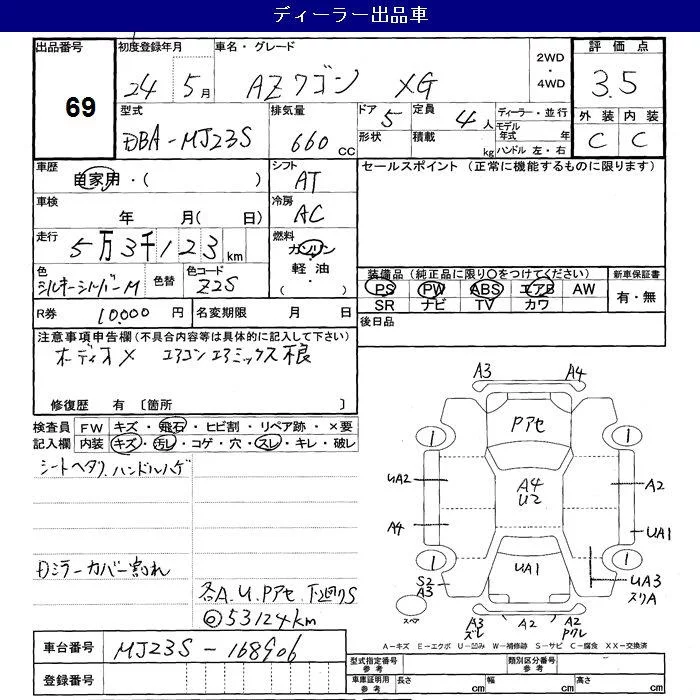 ディーラー出品車
出品番号 69
初度登録年月 24 5月
車名・グレード AZワゴン XG
2WD・4WD
評価点 3.5
外装 内装
C C
型式 DBA-MJ23S
排気量 660cc
ドア 5 定員 4人
形状 積載 kg
ディーラー・並行
モデル年式 年式
ハンドル 左・右
車歴 自家用・( )
シフト AT
セールスポイント (正常に機能するものに限ります)
車検 年 月( 日)
冷房 AC
走行 5万3千123km
燃料 ガソリン 軽油 ( ・ )
色 シルキーシルバーM 色替 色コード Z2S
装備品(純正品に限り○をつけてください) 新車保証書
PS PW ABS エアB AW 有・無
SR ナビ TV カワ
R券 10,000円 名変期限 月 日
後日品
注意事項申告欄(不具合内容等は具体的に記入して下さい)
オーディオ× エアコンエアミックス不良
修復歴 有〔箇所 〕
検査員 FW キズ・飛石・ヒビ割・リペア跡・×要
記入欄 内装 キズ・汚レ・コゲ・穴・スレ・キレ・破レ
シートヘタリ、ハンドルハゲ
Dミラーカバー割れ
各A.U.Pアセ.下廻りS
◎53124km
A3 A4
Pアセ
1 1
UA2 A4 U2 A2
A4 UA1
1 UA1 1
S2 A3 UA3 スリA
スペア
A3 ズレ A2 A2 Pワレ
A-キズ E-エクボ U-凹み W-補修跡 S-サビ C-腐食 XX-交換済
車台番号 MJ23S-168906
登録番号
型式指定番号 参考 類別区分番号 参考
車庫証明用 参考 長さ cm 幅 cm 高さ cm